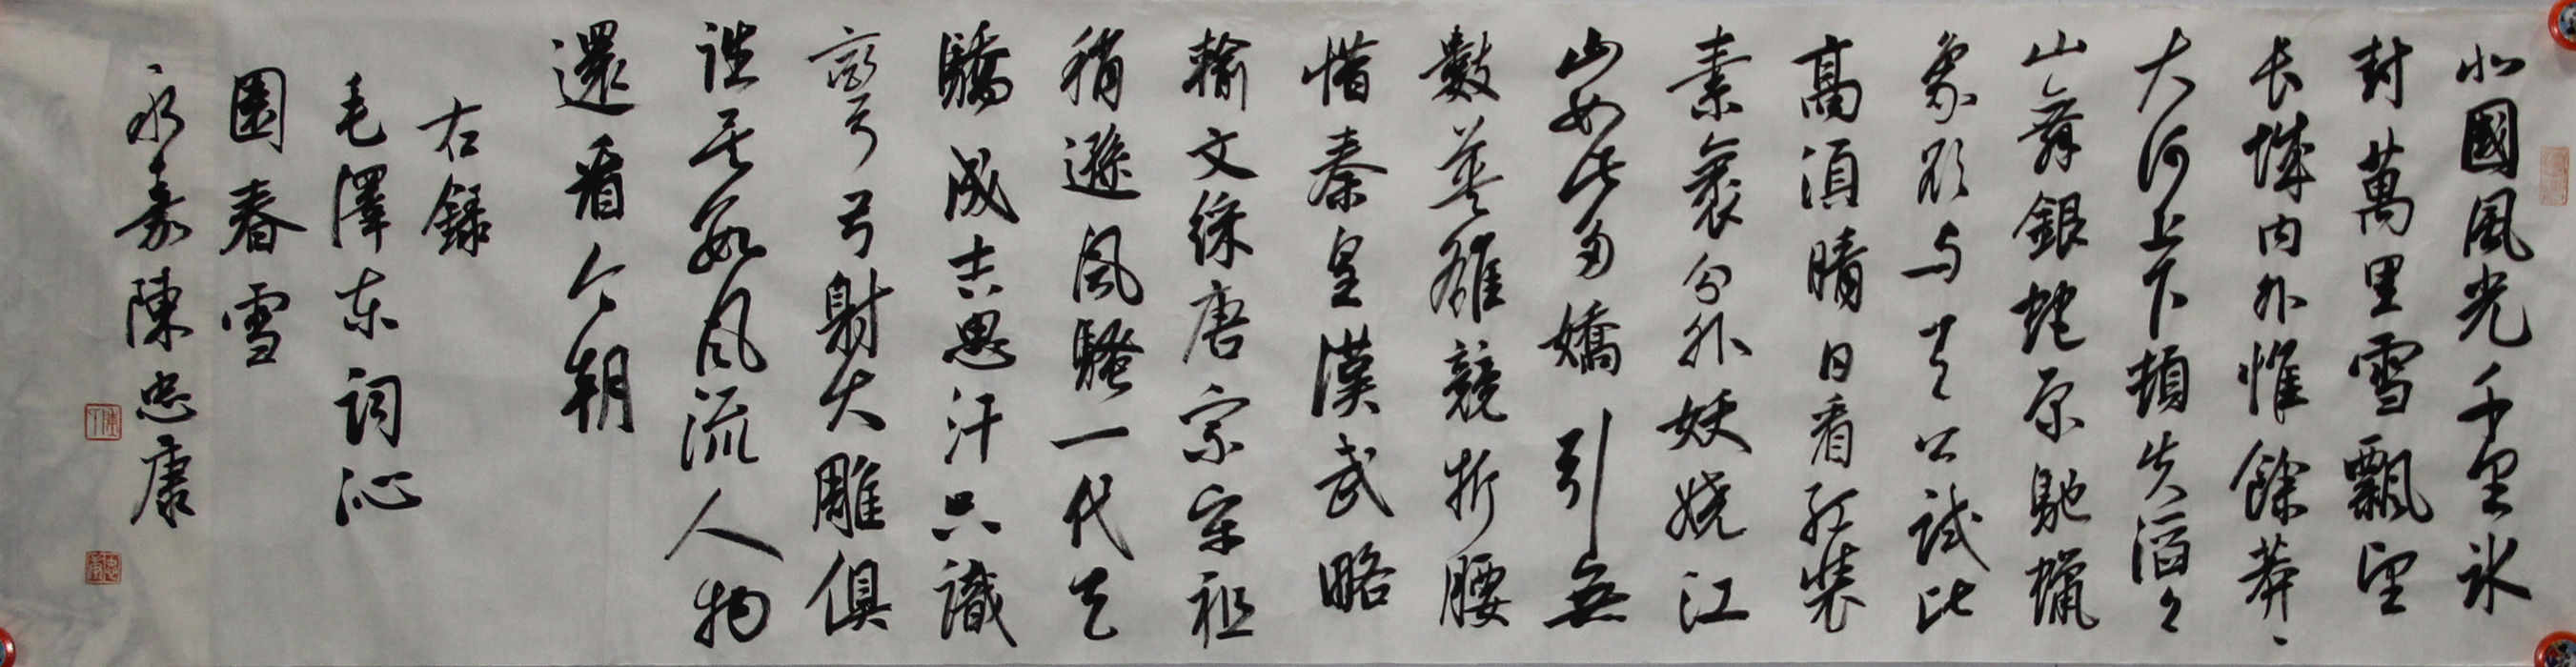 北國風光千里冰
封萬里雪飄望
长城内外惟餘莽、
大河上下頓失滔々
山舞銀蛇原馳蠟
象欲与天公試比
高須晴日看紅裝
素裹分外妖嬈江
山如此多嬌引無
數英雄競折腰
惜秦皇漢武略
輸文綵唐宗宋祖
稍遜風騷一代天
驕成吉思汗只識
彎弓射大雕俱
往矣數風流人物
還看今朝
右錄
毛澤东詞沁
園春雪
永嘉陳忠康